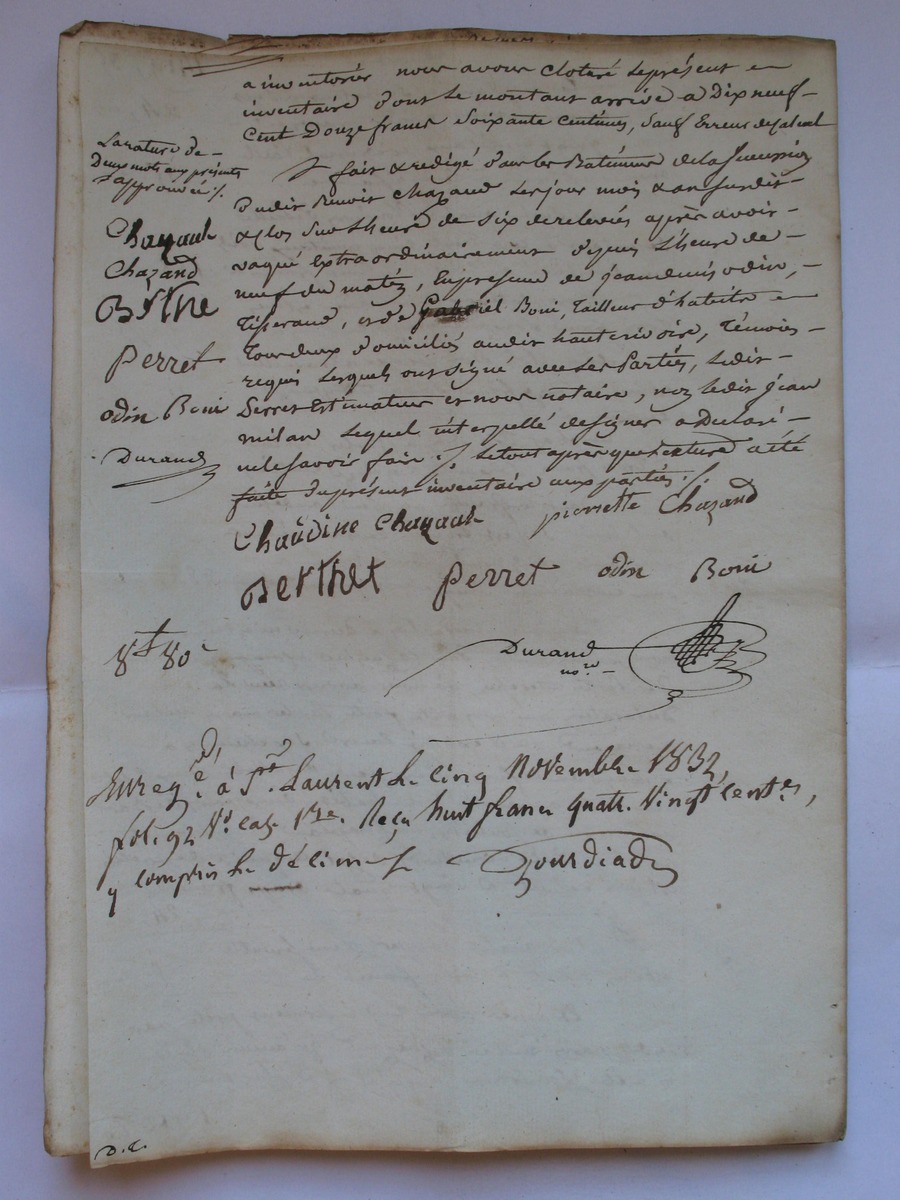 a inventorier nous avons cloturé le présent
inventaire dont le montant arrive a Dix neuf
Cent Douze francs Soixante Centimes, Sauf Erreur de Calcul
La rature de
Deux mots aux présentes
approuvée
fait & redigé dans les Batiments de la Succession
dudit Benoit Chazaud les jour mois & an susdit
& clos sur l'heure de six de relevées après avoir
vaqué extraordinairement depuis l'heure de
neuf du matin, En présence de jean denis odin,
Tisserand, et de Gabriel Boni, Tailleur d'habits
Tous deux domiciliés audit hauterivoire, Témoins
requis lesquels ont signé avec les Parties, ledit
Serres Estimateur et nous notaire, non ledit jean
milan lequel interpellé de signer a Declaré
ne le savoir faire le tout après que lecture a été
faite du présent inventaire aux parties
Chazaut
Chazaud
BRThe
Perret
odin Boni
Durand
Claudine Chazaut pierrette Chazaud
Berthet Perret odin Boni
8f 80c
Durand
nore
Enregé. á St. Laurent le cinq Novembre 1832,
fol. 92 Vo. case 1re. Reçu huit francs quatre Vingt centes,
y compris le décime
Gourdiad
D.C.